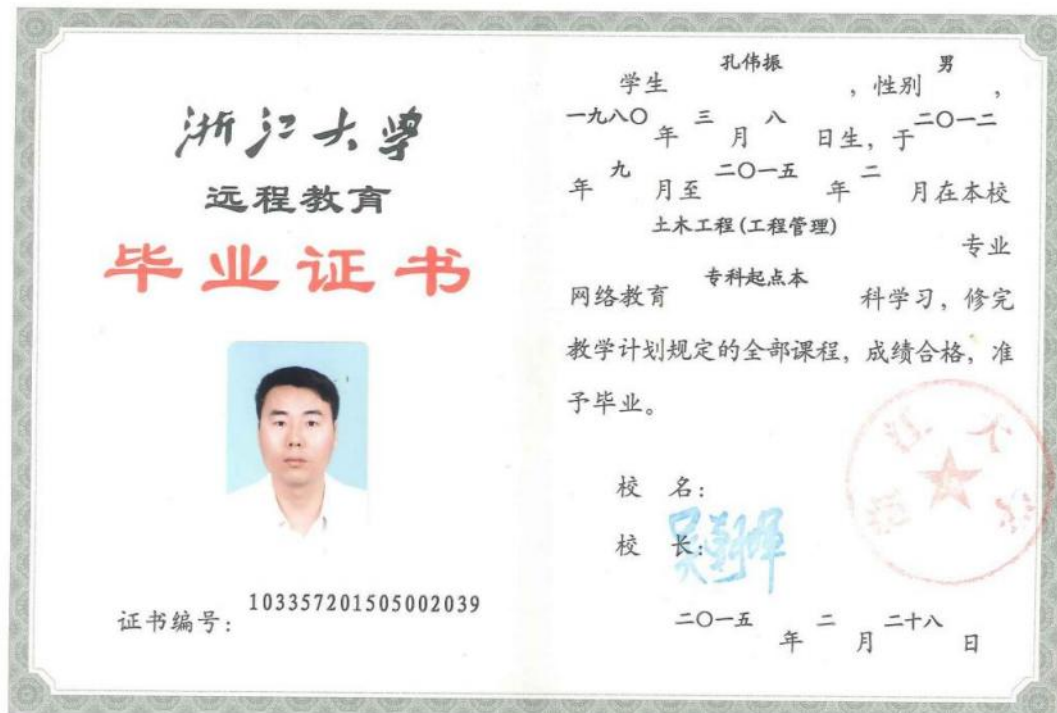 浙江大学
远程教育
毕业证书
证书编号：103357201505002039
学生 孔伟振 ，性别 男 ，
一九八〇年三月八日生，于二〇一二
年九月至二〇一五年二月在本校
土木工程(工程管理) 专业
网络教育 专科起点本 科学习，修完
教学计划规定的全部课程，成绩合格，准
予毕业。
校 名：
校 长：
二〇一五年二月二十八日